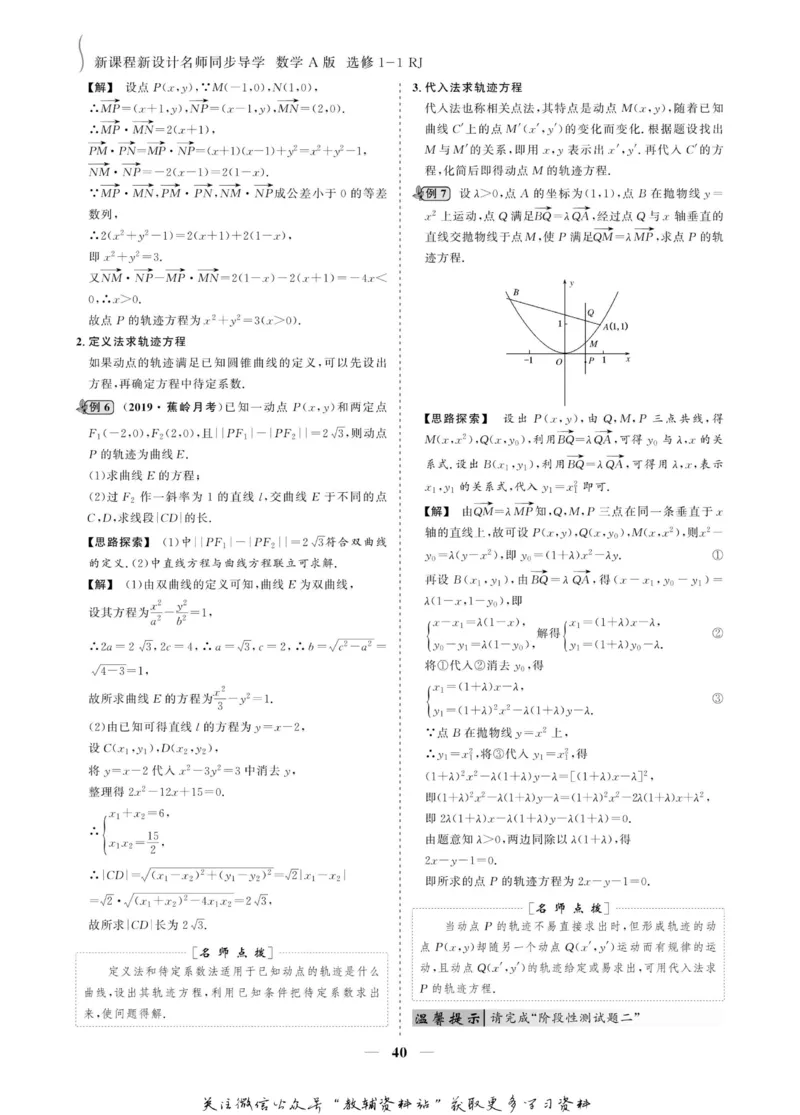 新课程新设计名师同步导学 数学 A 版 选修 1-1 RJ
【解】 设点 P(x,y),∵M(-1,0),N(1,0),
∴MP=(x+1,y),NP=(x-1,y),MN=(2,0).
∴MP·MN=2(x+1),
PM·PN=MP·NP=(x+1)(x-1)+y²=x²+y²-1,
NM·NP=-2(x-1)=2(1-x).
∵MP·MN,PM·PN,NM·NP成公差小于 0 的等差
数列,
∴2(x²+y²-1)=2(x+1)+2(1-x),
即 x²+y²=3.
又NM·NP-MP·MN=2(1-x)-2(x+1)=-4x<
0,∴x>0.
故点 P 的轨迹方程为 x²+y²=3(x>0).
2. 定义法求轨迹方程
如果动点的轨迹满足已知圆锥曲线的定义,可以先设出
方程,再确定方程中待定系数.
例 6 (2019·蕉岭月考)已知一动点 P(x,y)和两定点
F₁(-2,0),F₂(2,0),且||PF₁|-|PF₂||=2√3,则动点
P 的轨迹为曲线 E.
(1)求曲线 E 的方程;
(2)过 F₂ 作一斜率为 1 的直线 l,交曲线 E 于不同的点
C,D,求线段|CD|的长.
【思路探索】 (1)中||PF₁|-|PF₂||=2√3符合双曲线
的定义.(2)中直线方程与曲线方程联立可求解.
【解】 (1)由双曲线的定义可知,曲线 E 为双曲线,
设其方程为x²/a²-y²/b²=1,
∴2a=2√3,2c=4,∴a=√3,c=2,∴b=√(c²-a²)=
√(4-3)=1,
故所求曲线 E 的方程为x²/3-y²=1.
(2)由已知可得直线 l 的方程为 y=x-2,
设 C(x₁,y₁),D(x₂,y₂),
将 y=x-2 代入 x²-3y²=3 中消去 y,
整理得 2x²-12x+15=0.
∴{x₁+x₂=6,
x₁x₂=15/2,
∴|CD|=√((x₁-x₂)²+(y₁-y₂)²)=√2|x₁-x₂|
=√2·√((x₁+x₂)²-4x₁x₂)=2√3,
故所求|CD|长为 2√3.
[名师点拨]
定义法和待定系数法适用于已知动点的轨迹是什么
曲线,设出其轨迹方程,利用已知条件把待定系数求出
来,使问题得解.
3. 代入法求轨迹方程
代入法也称相关点法,其特点是动点 M(x,y),随着已知
曲线 C′上的点 M′(x′,y′)的变化而变化.根据题设找出
M 与 M′的关系,即用 x,y 表示出 x′,y′.再代入 C′的方
程,化简后即得动点 M 的轨迹方程.
例 7 设 λ>0,点 A 的坐标为(1,1),点 B 在抛物线 y=
x² 上运动,点 Q 满足BQ=λQA,经过点 Q 与 x 轴垂直的
直线交抛物线于点 M,使 P 满足QM=λMP,求点 P 的轨
迹方程.
y
B
Q
1
A(1,1)
M
-1 O P 1 x
【思路探索】 设出 P(x,y),由 Q,M,P 三点共线,得
M(x,x²),Q(x,y₀),利用BQ=λQA,可得 y₀ 与 λ,x 的关
系式.设出 B(x₁,y₁),利用BQ=λQA,可得用 λ,x,表示
x₁,y₁ 的关系式,代入 y₁=x₁² 即可.
【解】 由QM=λMP知,Q,M,P 三点在同一条垂直于 x
轴的直线上,故可设 P(x,y),Q(x,y₀),M(x,x²),则x²-
y₀=λ(y-x²),即 y₀=(1+λ)x²-λy. ①
再设 B(x₁,y₁),由BQ=λQA,得(x-x₁,y₀-y₁)=
λ(1-x,1-y₀),即
{x-x₁=λ(1-x), 解得 {x₁=(1+λ)x-λ, ②
y₀-y₁=λ(1-y₀), y₁=(1+λ)y₀-λ.
将①代入②消去 y₀,得
{x₁=(1+λ)x-λ, ③
y₁=(1+λ)²x²-λ(1+λ)y-λ.
∵点 B 在抛物线 y=x² 上,
∴y₁=x₁²,将③代入 y₁=x₁²,得
(1+λ)²x²-λ(1+λ)y-λ=[(1+λ)x-λ]²,
即(1+λ)²x²-λ(1+λ)y-λ=(1+λ)²x²-2λ(1+λ)x+λ²,
即 2λ(1+λ)x-λ(1+λ)y-λ(1+λ)=0.
由题意知 λ>0,两边同除以 λ(1+λ),得
2x-y-1=0.
即所求的点 P 的轨迹方程为 2x-y-1=0.
[名师点拨]
当动点 P 的轨迹不易直接求出时,但形成轨迹的动
点 P(x,y)却随另一个动点 Q(x′,y′)运动而有规律的运
动,且动点 Q(x′,y′)的轨迹给定或易求出,可用代入法求
P 的轨迹方程.
温馨提示 请完成“阶段性测试题二”
— 40 —
关注微信公众号“教辅资料站”获取更多学习资料